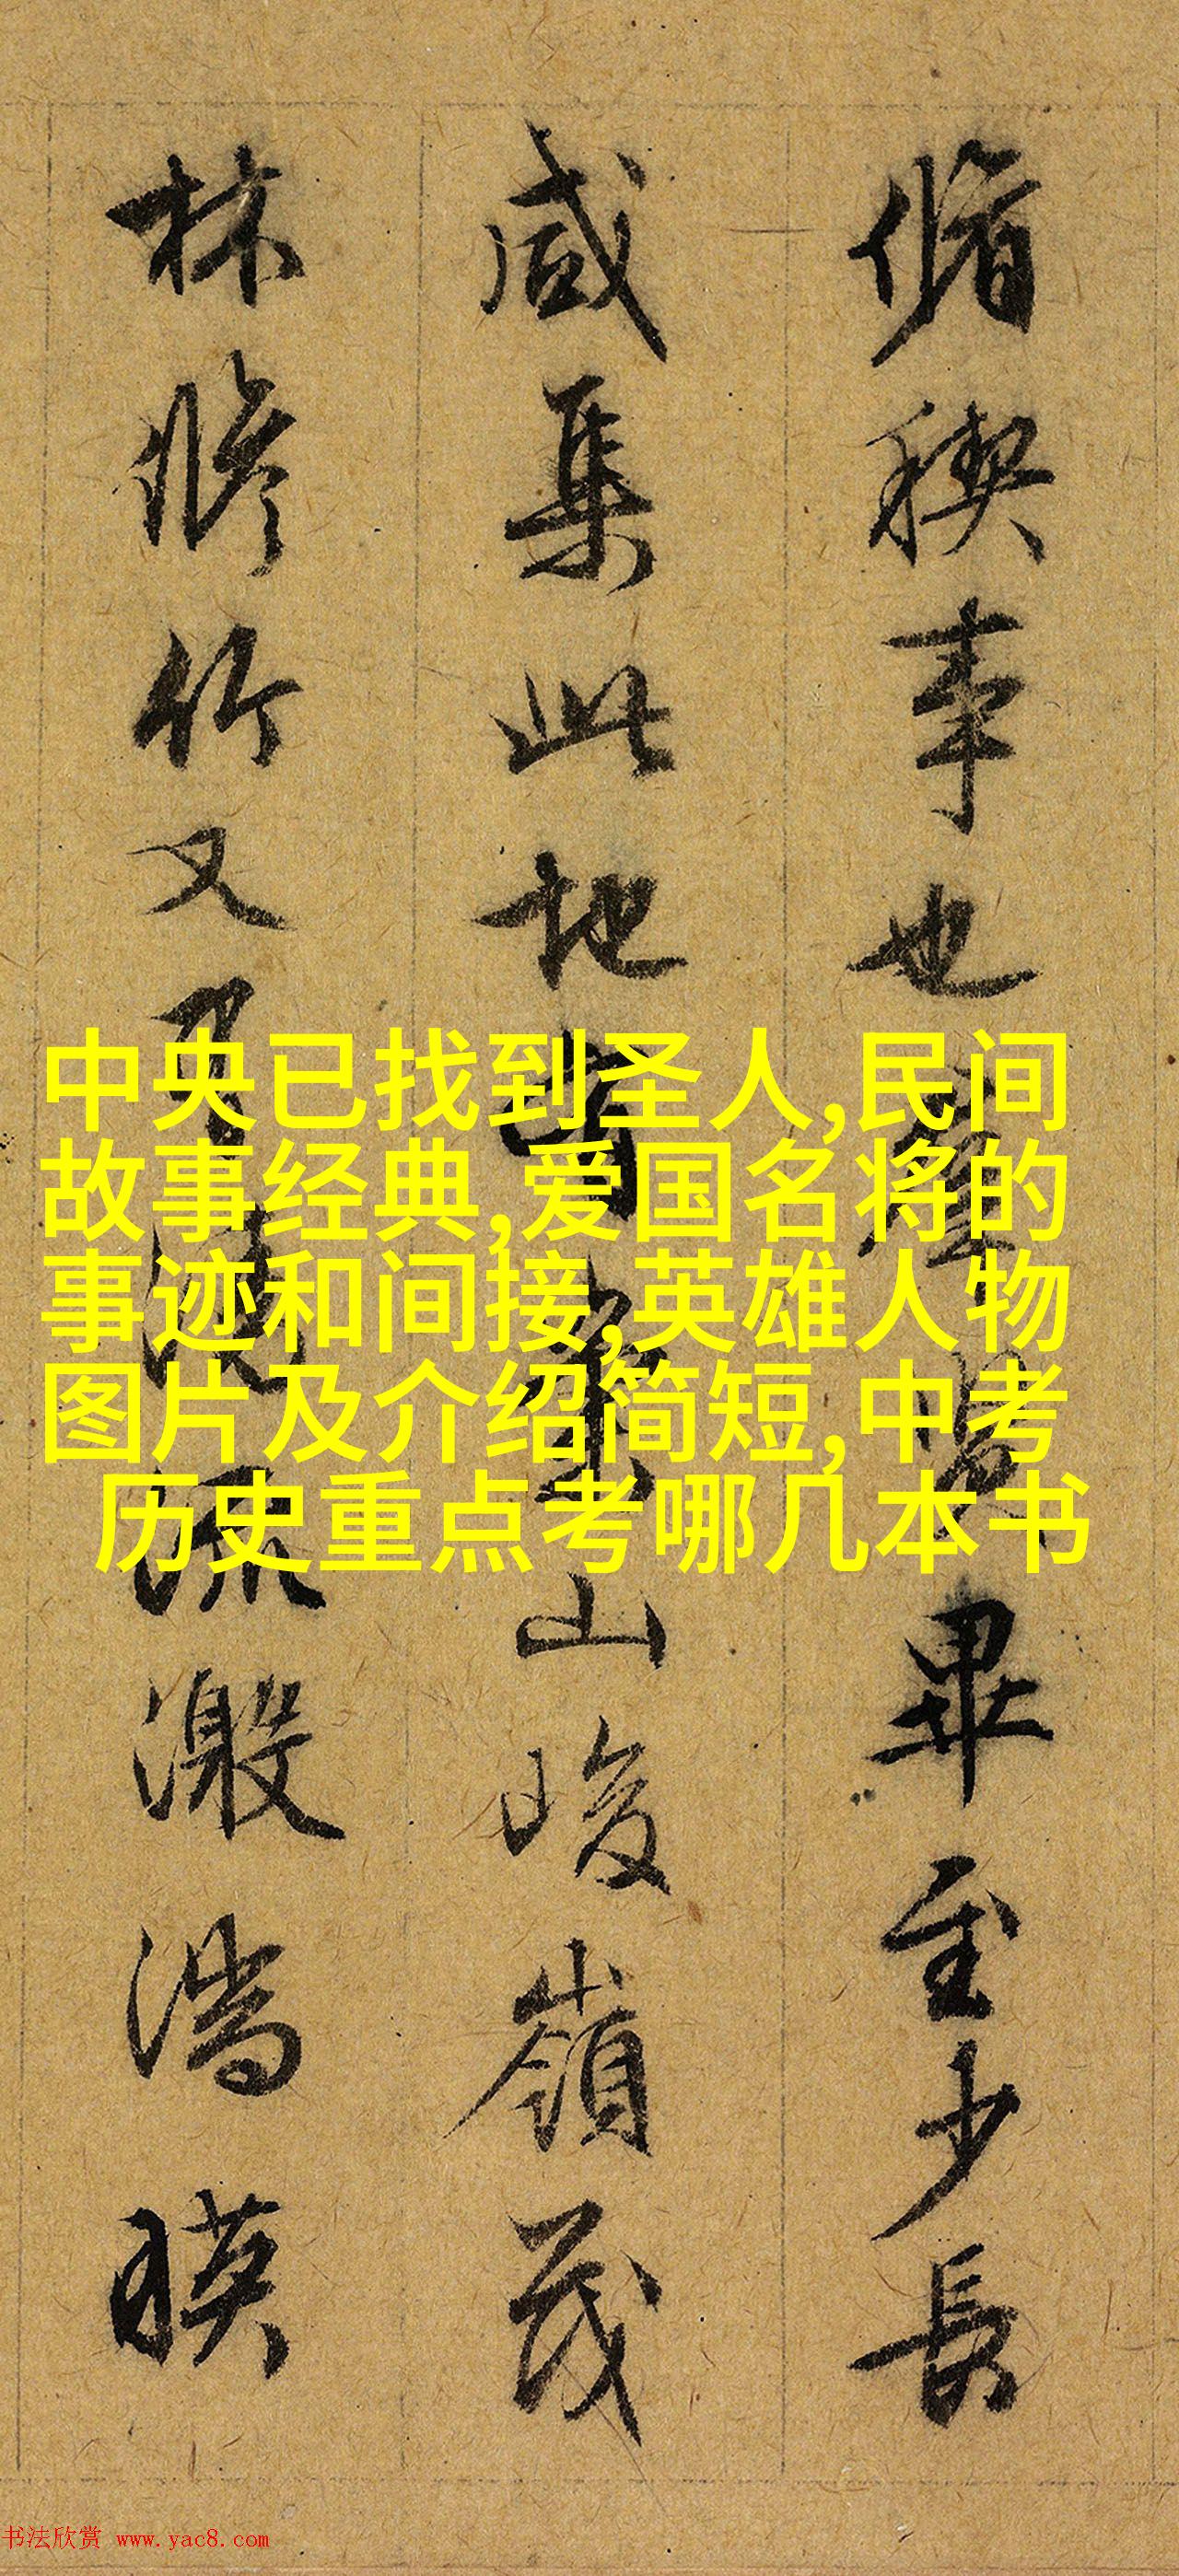 脩稧事也羣賢畢至少長
咸集此地有崇山峻嶺茂
林脩竹又有清流激湍暎
中央已找到圣人,民间
故事经典,爱国名将的
事迹和间接,英雄人物
图片及介绍简短,中考
历史重点考哪几本书
书法欣赏 www.yac8.com